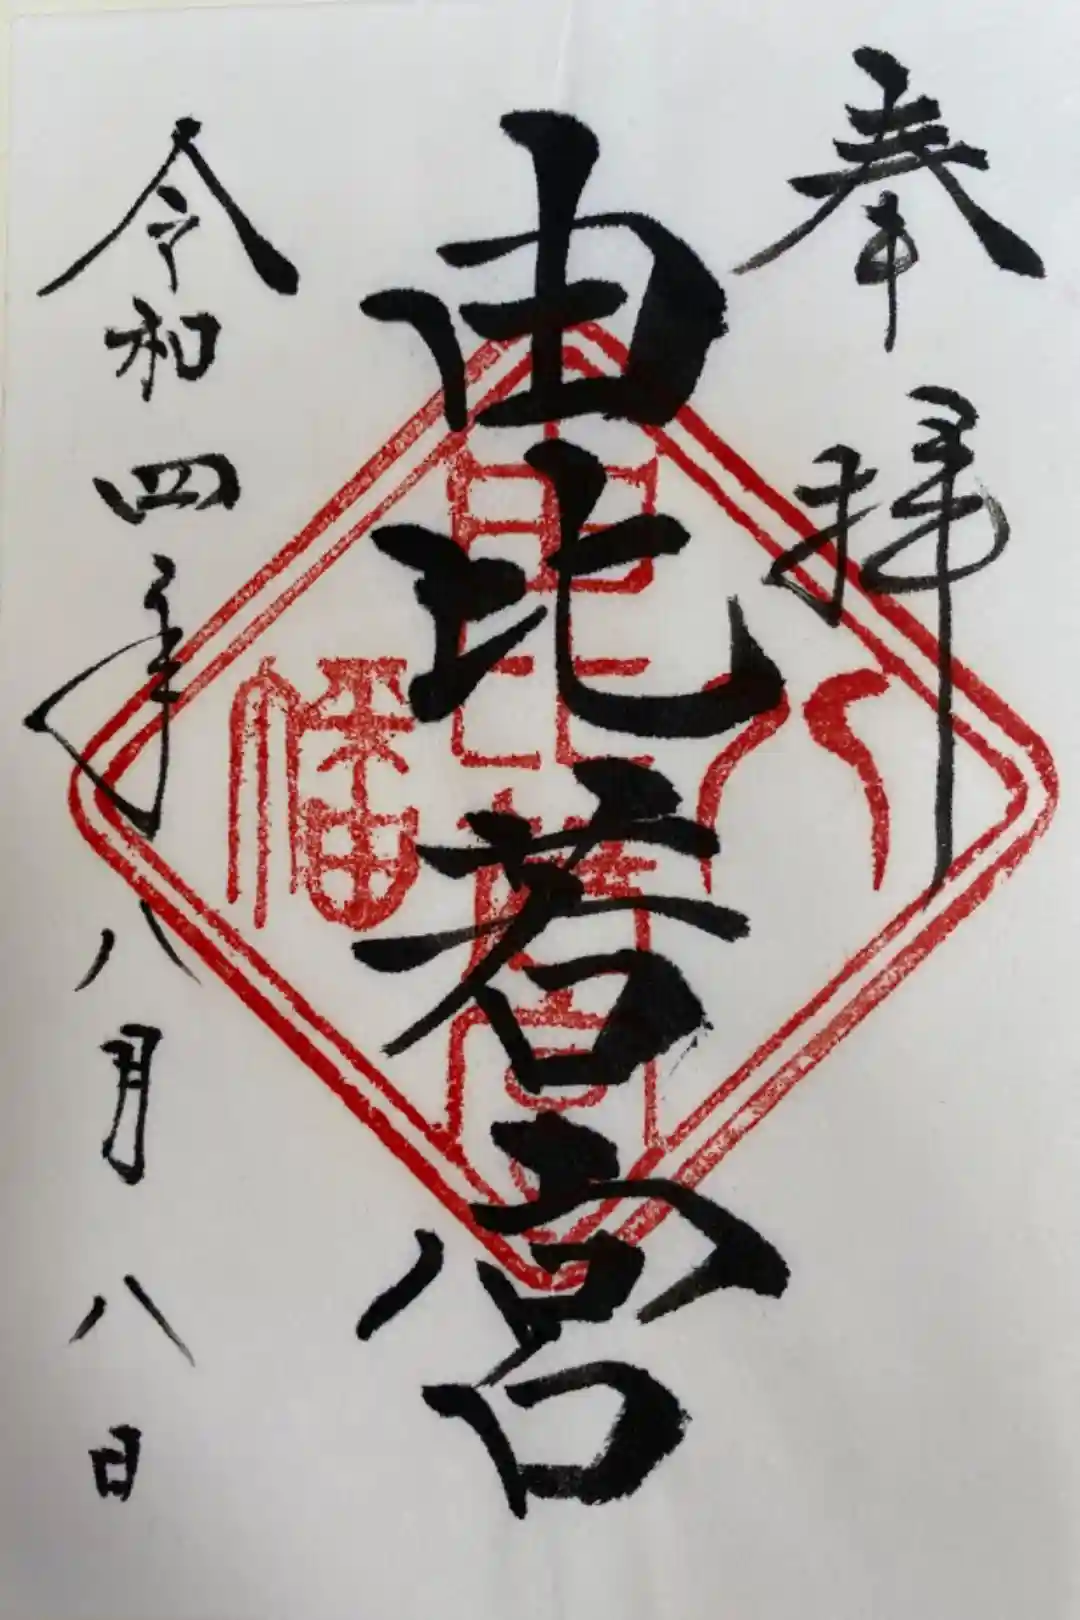 奉拝
由比若宮
八幡
由比若宮
令和四年八月八日